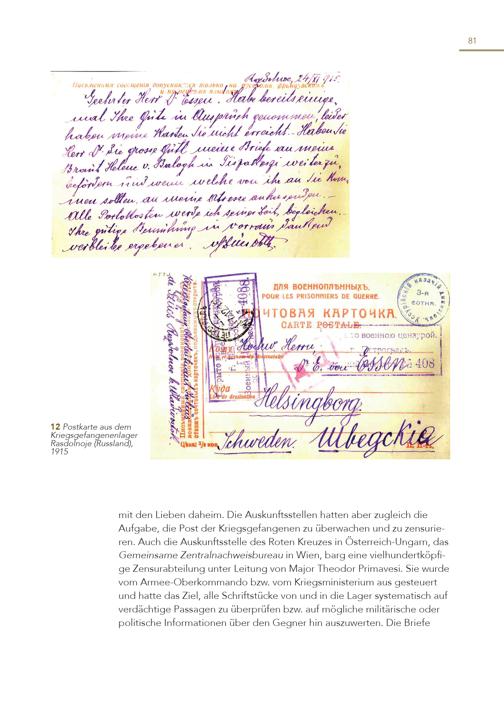 81
Rasdolnoe, 24/XI 915.
Geehrter Herr Dr Essen. Habe bereits einige-
mal Ihre Güte in Anspruch genommen, leider
haben meine Karten Sie nicht erreicht. Haben Sie
Herr Dr die grosse Güte meine Briefe an meine
Braut Helene v. Balogh in weiterzu-
befördern und wenn welche von ihr an Sie kom-
men sollten, an meine Adresse
Alle Portokosten werde ich seiner Zeit, begleichen.
Ihre gütige Bemühung in voraus dankend
verbleibe ergebener
ДЛЯ ВОЕННОПЛѢННЫХЪ.
POUR LES PRISONNIERS DE GUERRE.
ПОЧТОВАЯ КАРТОЧКА.
CARTE POSTALE.
3-я
СОТНЯ.
военной цензурой.
Herrn
Dr E. von Essen
408
Куда
Helsingborg.
Schweden. Швецкіа
12 Postkarte aus dem
Kriegsgefangenenlager
Rasdolnoje (Russland),
1915
mit den Lieben daheim. Die Auskunftsstellen hatten aber zugleich die
Aufgabe, die Post der Kriegsgefangenen zu überwachen und zu zensurie-
ren. Auch die Auskunftsstelle des Roten Kreuzes in Österreich-Ungarn, das
Gemeinsame Zentralnachweisbureau in Wien, barg eine vielhundertköpfi-
ge Zensurabteilung unter Leitung von Major Theodor Primavesi. Sie wurde
vom Armee-Oberkommando bzw. vom Kriegsministerium aus gesteuert
und hatte das Ziel, alle Schriftstücke von und in die Lager systematisch auf
verdächtige Passagen zu überprüfen bzw. auf mögliche militärische oder
politische Informationen über den Gegner hin auszuwerten. Die Briefe